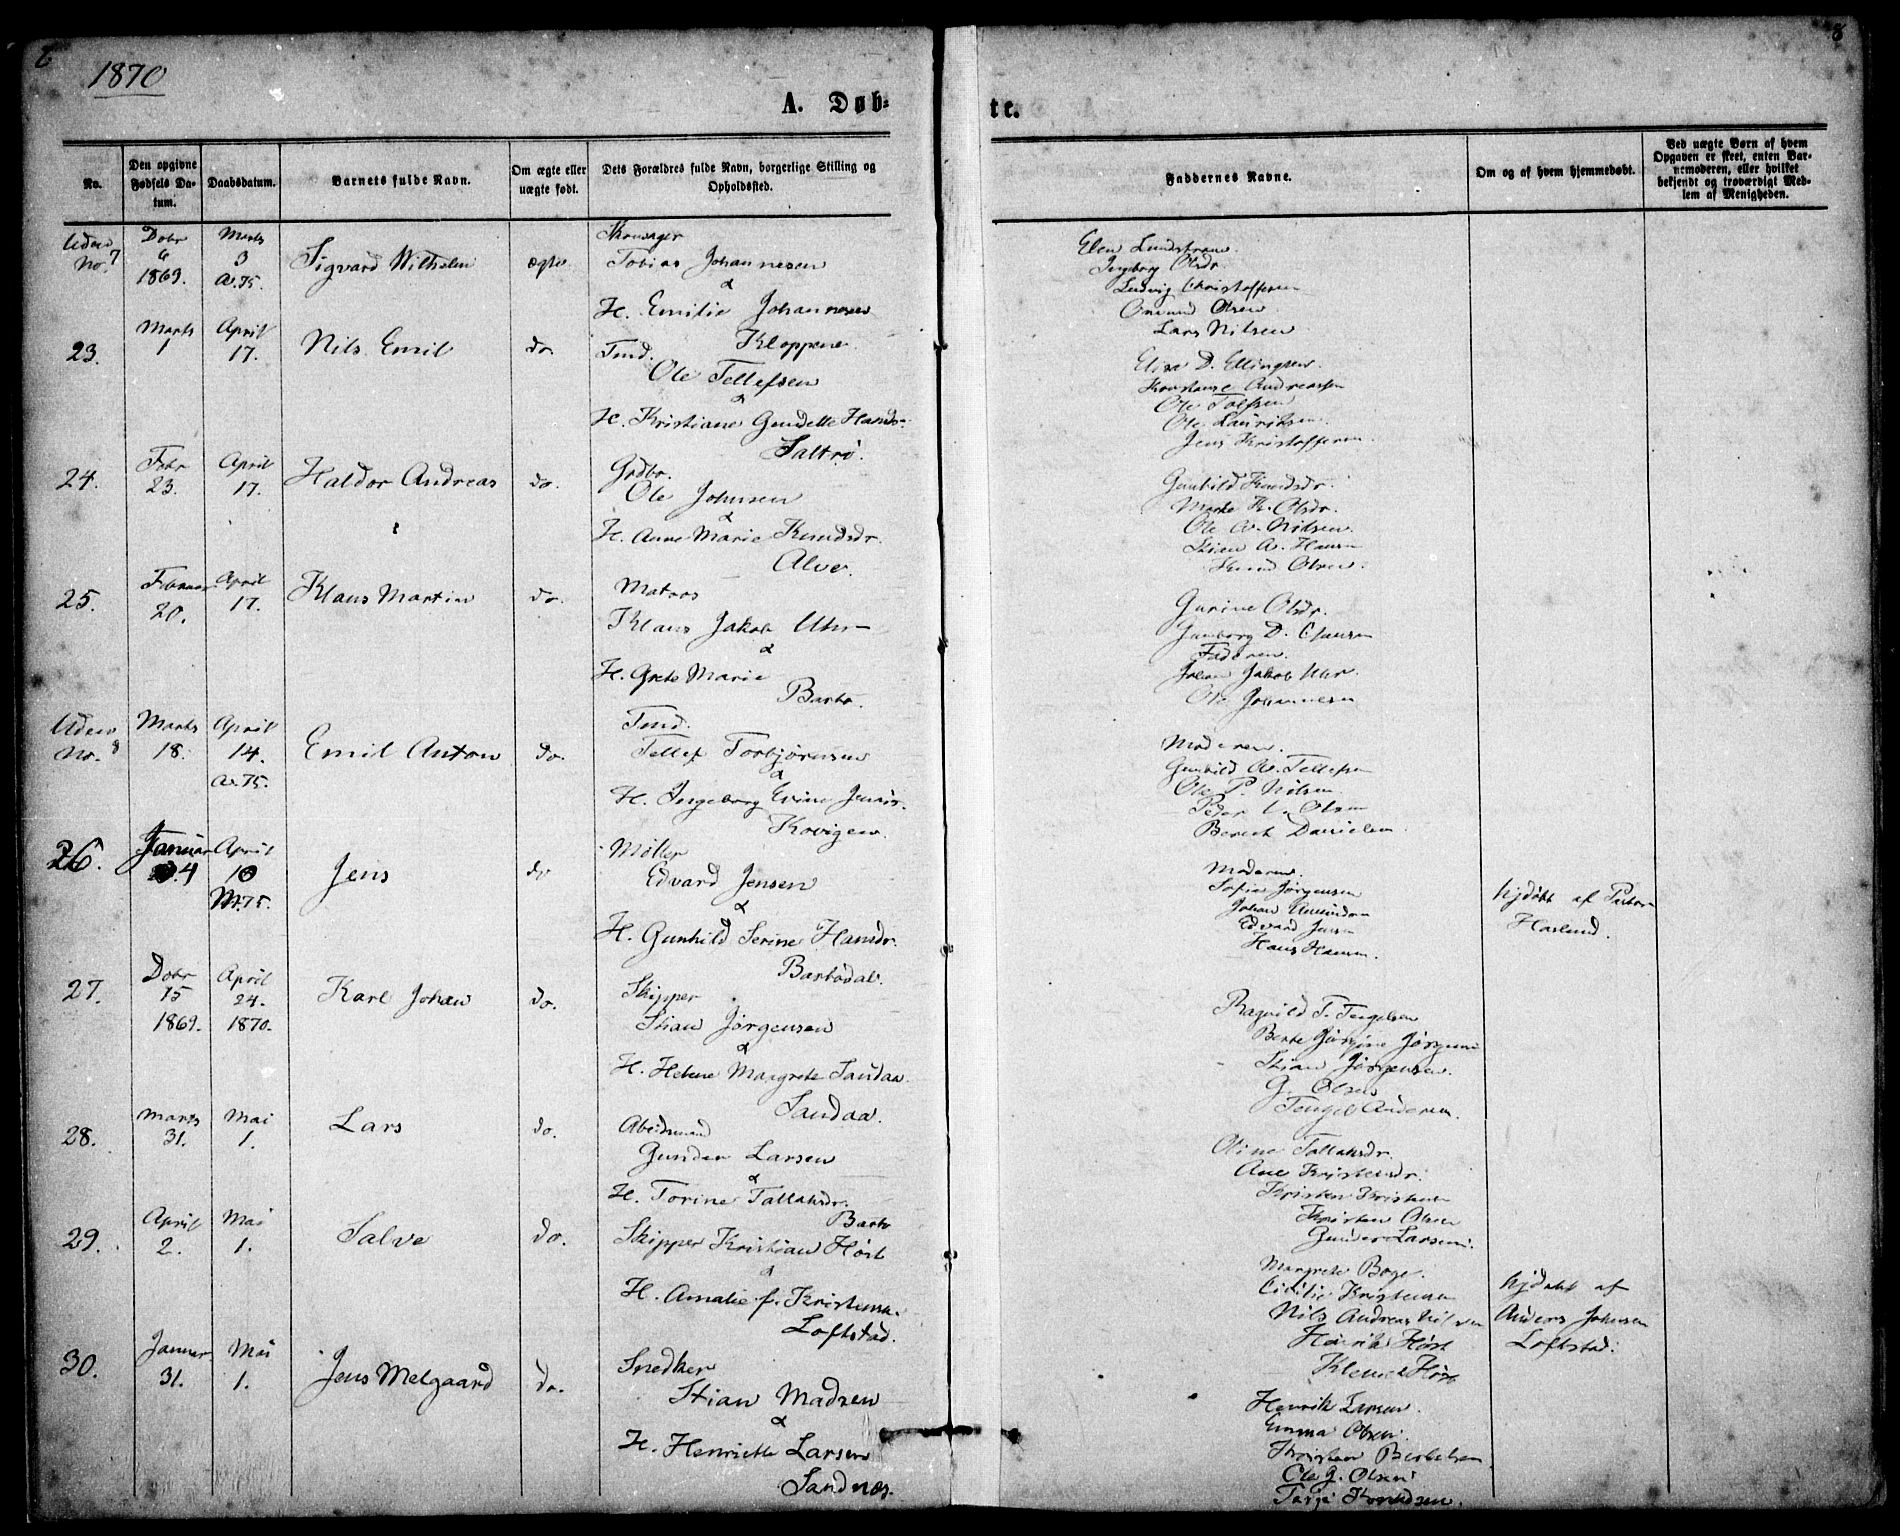 1870
8
A. Døbte.
No.
Den opgivne Fødsels Datum.
Daabsdatum.
Barnets fulde Navn.
Om ægte eller uægte født.
Dets Forældres fulde Navn, borgerlige Stilling og Opholdssted.
Faddernes Navne.
Om og af hvem hjemmedøbt.
Ved uægte Børn af hvem Opgaven er skeet, enten Barnemoderen, eller hvilket bekjendt og troværdigt Medlem af Menigheden.
Uden No. 7
Dbr 6 1869.
Marts 3 a.75.
Sigvard Wilhelm
ægte.
Tobias Johannesen
&
H. Emilie Johannesen
Kloppene.
Ingeborg Olsdr.
Ludvig Christoffersen
Omund Olsen
Lars Nilsen
23.
Marts 1
April 17.
Nils Emil
do.
Tmd.
Ole Tellefsen
&
H. Kristiane Gundelle Hansdr.
Saltrø.
Elise D. Ellingsen.
Konstanse Andreassen
Ole Lauritsen.
Jens Kristoffersen.
24.
Febr 23.
April 17.
Haldor Andreas
do.
Grdbr.
Ole Johnsen
&
H. Anne Marie Knudsdr.
Alve.
Gunhild Knudsdr.
Marte K. Olsdr.
Ole A. Nilsen.
Stian A. Hansen
Knud Olsen.
25.
Februar 20.
April 17.
Klaus Martin
do.
Matros
Klaus Jakob Uhr
&
H. Grete Marie
Barbo.
Gurine Olsdr.
Faderen.
Johan Jakob Uhr.
Ole Johannesen
Uden No. 8
Marts 18.
April 14. a.75.
Emil Anton
do.
Tmd.
Tellef Torbjørnsen
&
H. Ingeborg Evine Jensdr.
Kovigen.
Moderen.
Gunhild A. Tellefsen
Ole P. Nilsen
Peder L. Olsen
Berent Danielsen.
26.
Januar 4
April 10 M.75.
Jens
do
Møller
Edvard Jensen
&
H. Gunhild Serine Hansdr.
Barbodal.
Moderen.
Sofie Jørgensen
Johan Amundsen
Edvard Jensen
Hans Hansen.
hjdøbt af Pastor
Haslund.
27.
Dbr 15 1869.
April 24. 1870.
Karl Johan
do.
Skipper
Stian Jørgensen
&
H. Helene Margrete Sandaa.
Sandaa.
Ragnild T. Tengelsen
Berte Jørgine Jørgensen
Stian Jørgensen.
G. Olsen
Tengel Andersen.
28.
Marts 31.
Mai 1.
Lars
do.
Arbeidsmand
Gunder Larsen
&
H. Torine Tallaksdr.
Barbo
Oline Tallaksdr.
Ane Kristensdr.
Kristen Kristensen
Kristen Olsen
Gunder Larsen.
29.
April 2.
Mai 1.
Salve
do.
Skipper Kristian Høst
&
H. Amalie f. Kristensen.
Loftstad.
Margrete Boge.
Cicilie Kristensen
Nils Andreas Nilsen
Henrik Høst
Klemet Høst
hjdøbt af
Anders Johnsen
Loftstad.
30.
Januar 31.
Mai 1.
Jens Melgaard
do.
Snedker
Stian Madsen
&
H. Henriette Larsen
Sandnes.
Henrik Larsen.
Emma Olsen.
Kristian Bertelsen
Ole G. Olsen
Tarje Knudsen.